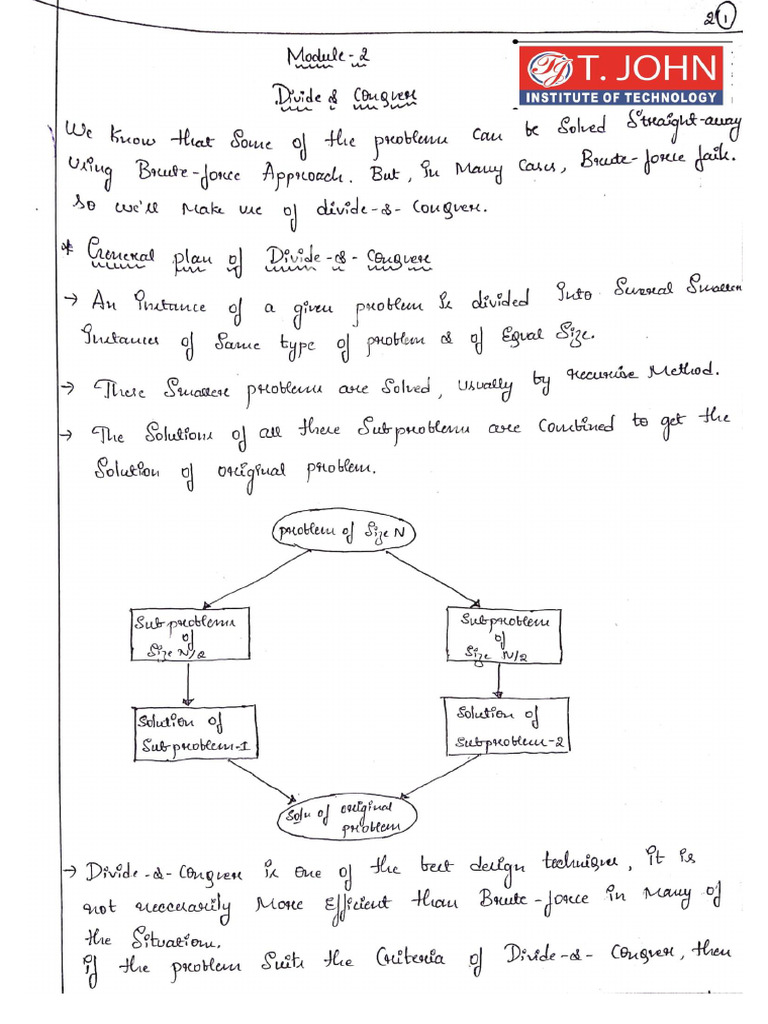 2 1
Module-2
T. JOHN
INSTITUTE OF TECHNOLOGY
Divide & Conquer
We know that some of the problem can be solved straight-away
using Brute-force Approach. But, in Many Cases, Brute-force fails.
so we'll make use of divide-&-conquer.
* General plan of Divide-&-Conquer
→ An instance of a given problem is divided into several smaller
instances of same type of problem & of Equal size.
→ These smaller problem are solved, usually by recursive Method.
→ The solutions of all these subproblem are combined to get the
solution of original problem.
problem of size N
Subproblem
of
size N/2
Subproblem
of
size N/2
Solution of
Subproblem-1
Solution of
Subproblem-2
Soln of original
problem
→ Divide-&-conquer is one of the best design technique, it is
not neccesarily More Efficient than Brute-force in many of
the situation.
if the problem suits the criteria of Divide-&-Conquer, then